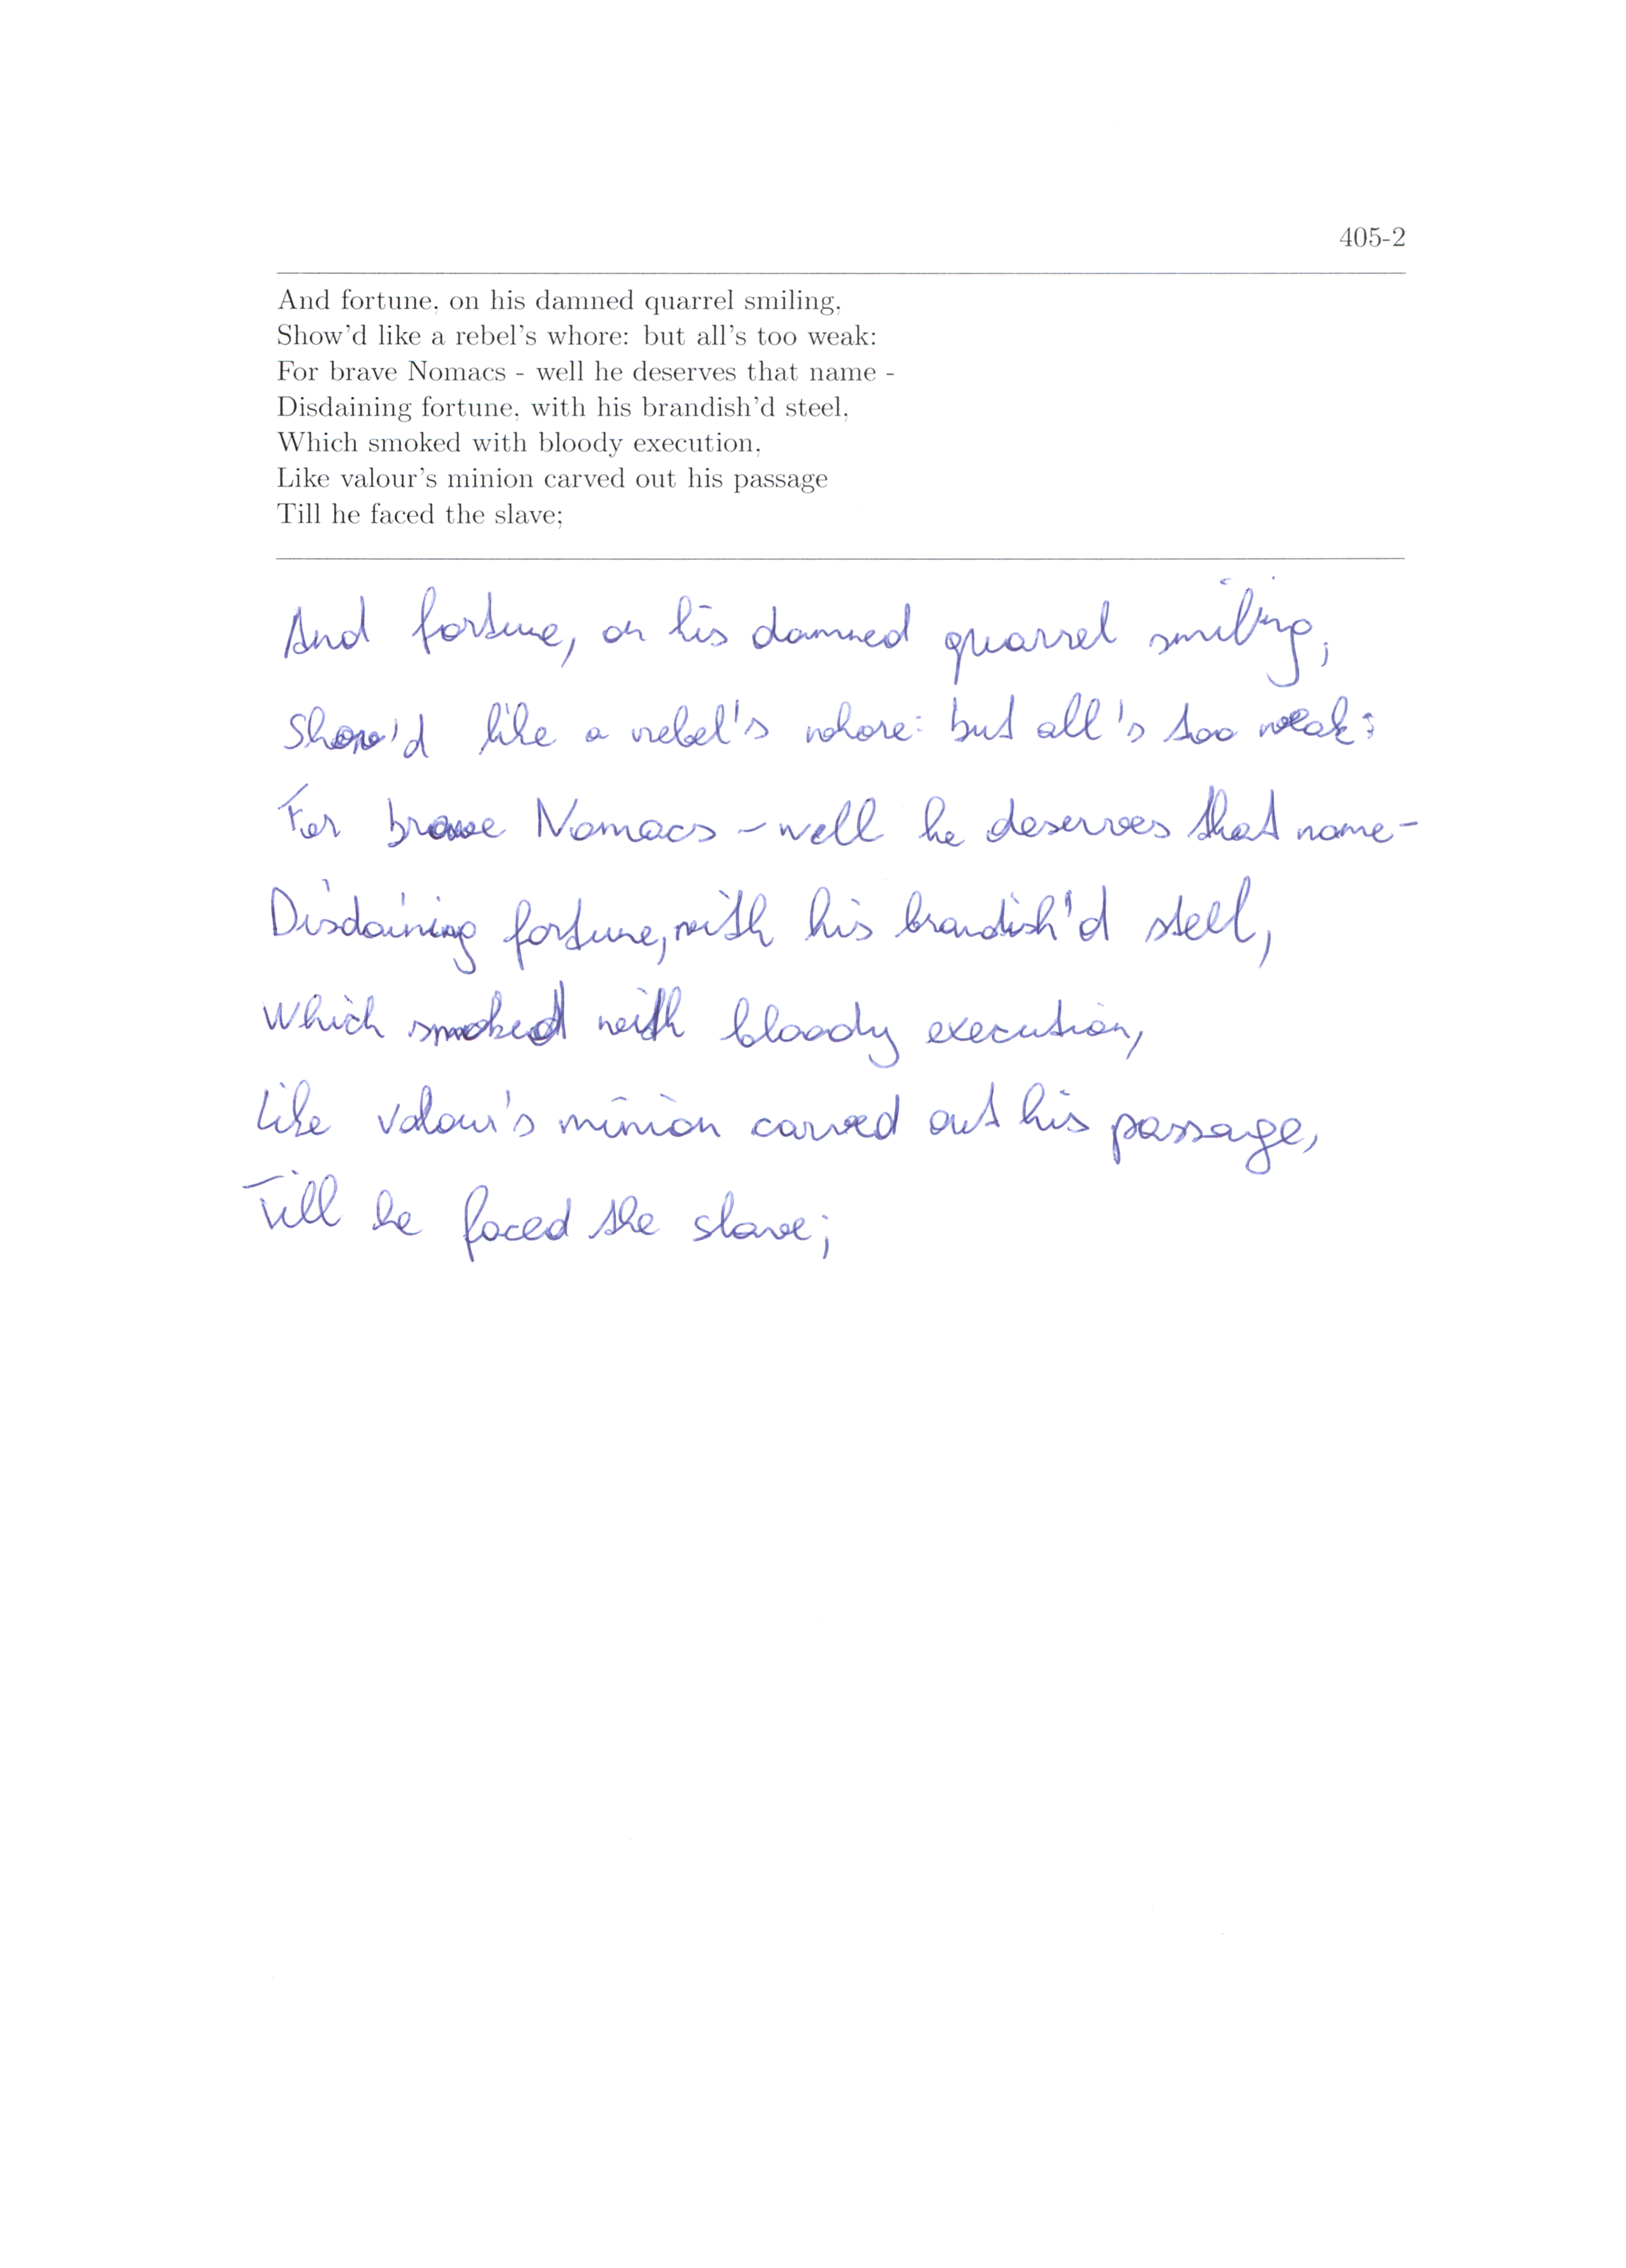 405-2
And fortune, on his damned quarrel smiling,
Show'd like a rebel's whore: but all's too weak:
For brave Nomacs - well he deserves that name -
Disdaining fortune, with his brandish'd steel,
Which smoked with bloody execution,
Like valour's minion carved out his passage
Till he faced the slave;
And fortune, on his damned quarrel smiling,
Show'd like a rebel's whore: but all's too weak:
For brave Nomacs - well he deserves that name -
Disdaining fortune, with his brandish'd steel,
Which smoked with bloody execution,
Like valour's minion carved out his passage,
Till he faced the slave;